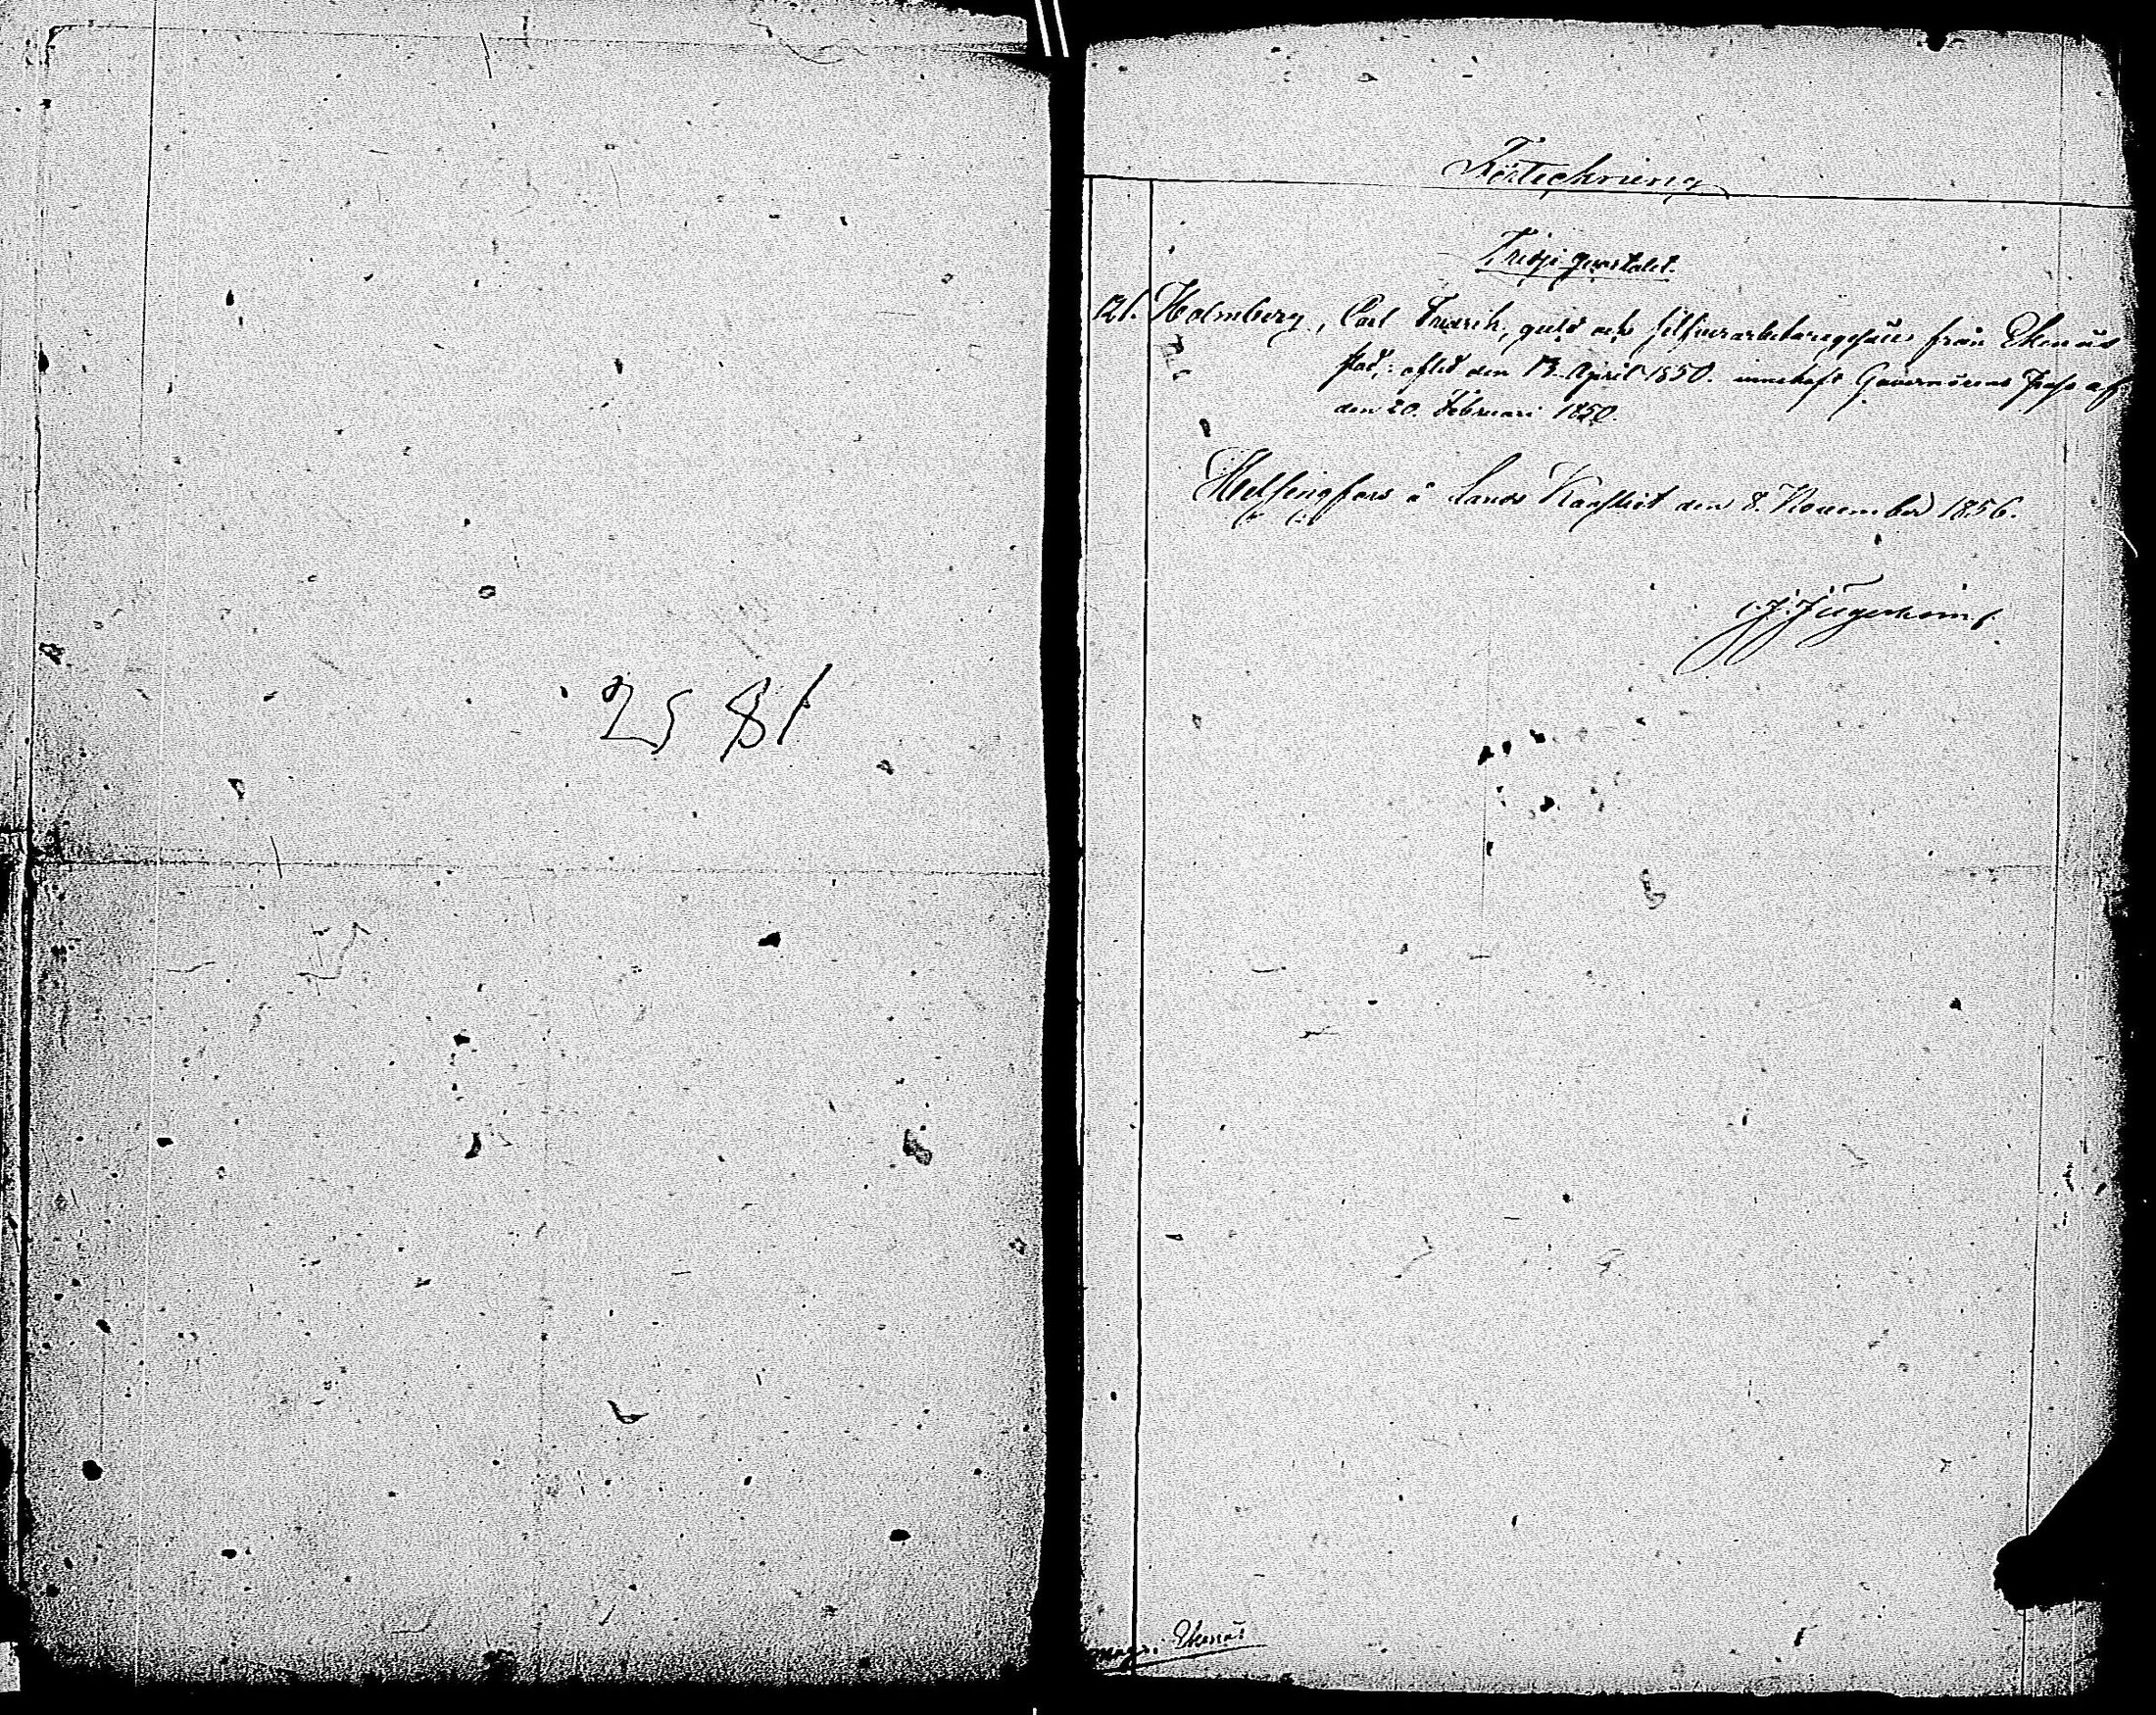 25 81
Förteckning
Tredje quartalet.
121. Holmberg, Carl Fredrik, guld och silfverarbetaregesäll från Ekenäs
stad, : afled den 13 April 1850. innehaft Gouvernörens Pass af
den 20. Februari 1850.
Helsingfors å Lands Kansliet den 8. November 1856.
Ekenäs